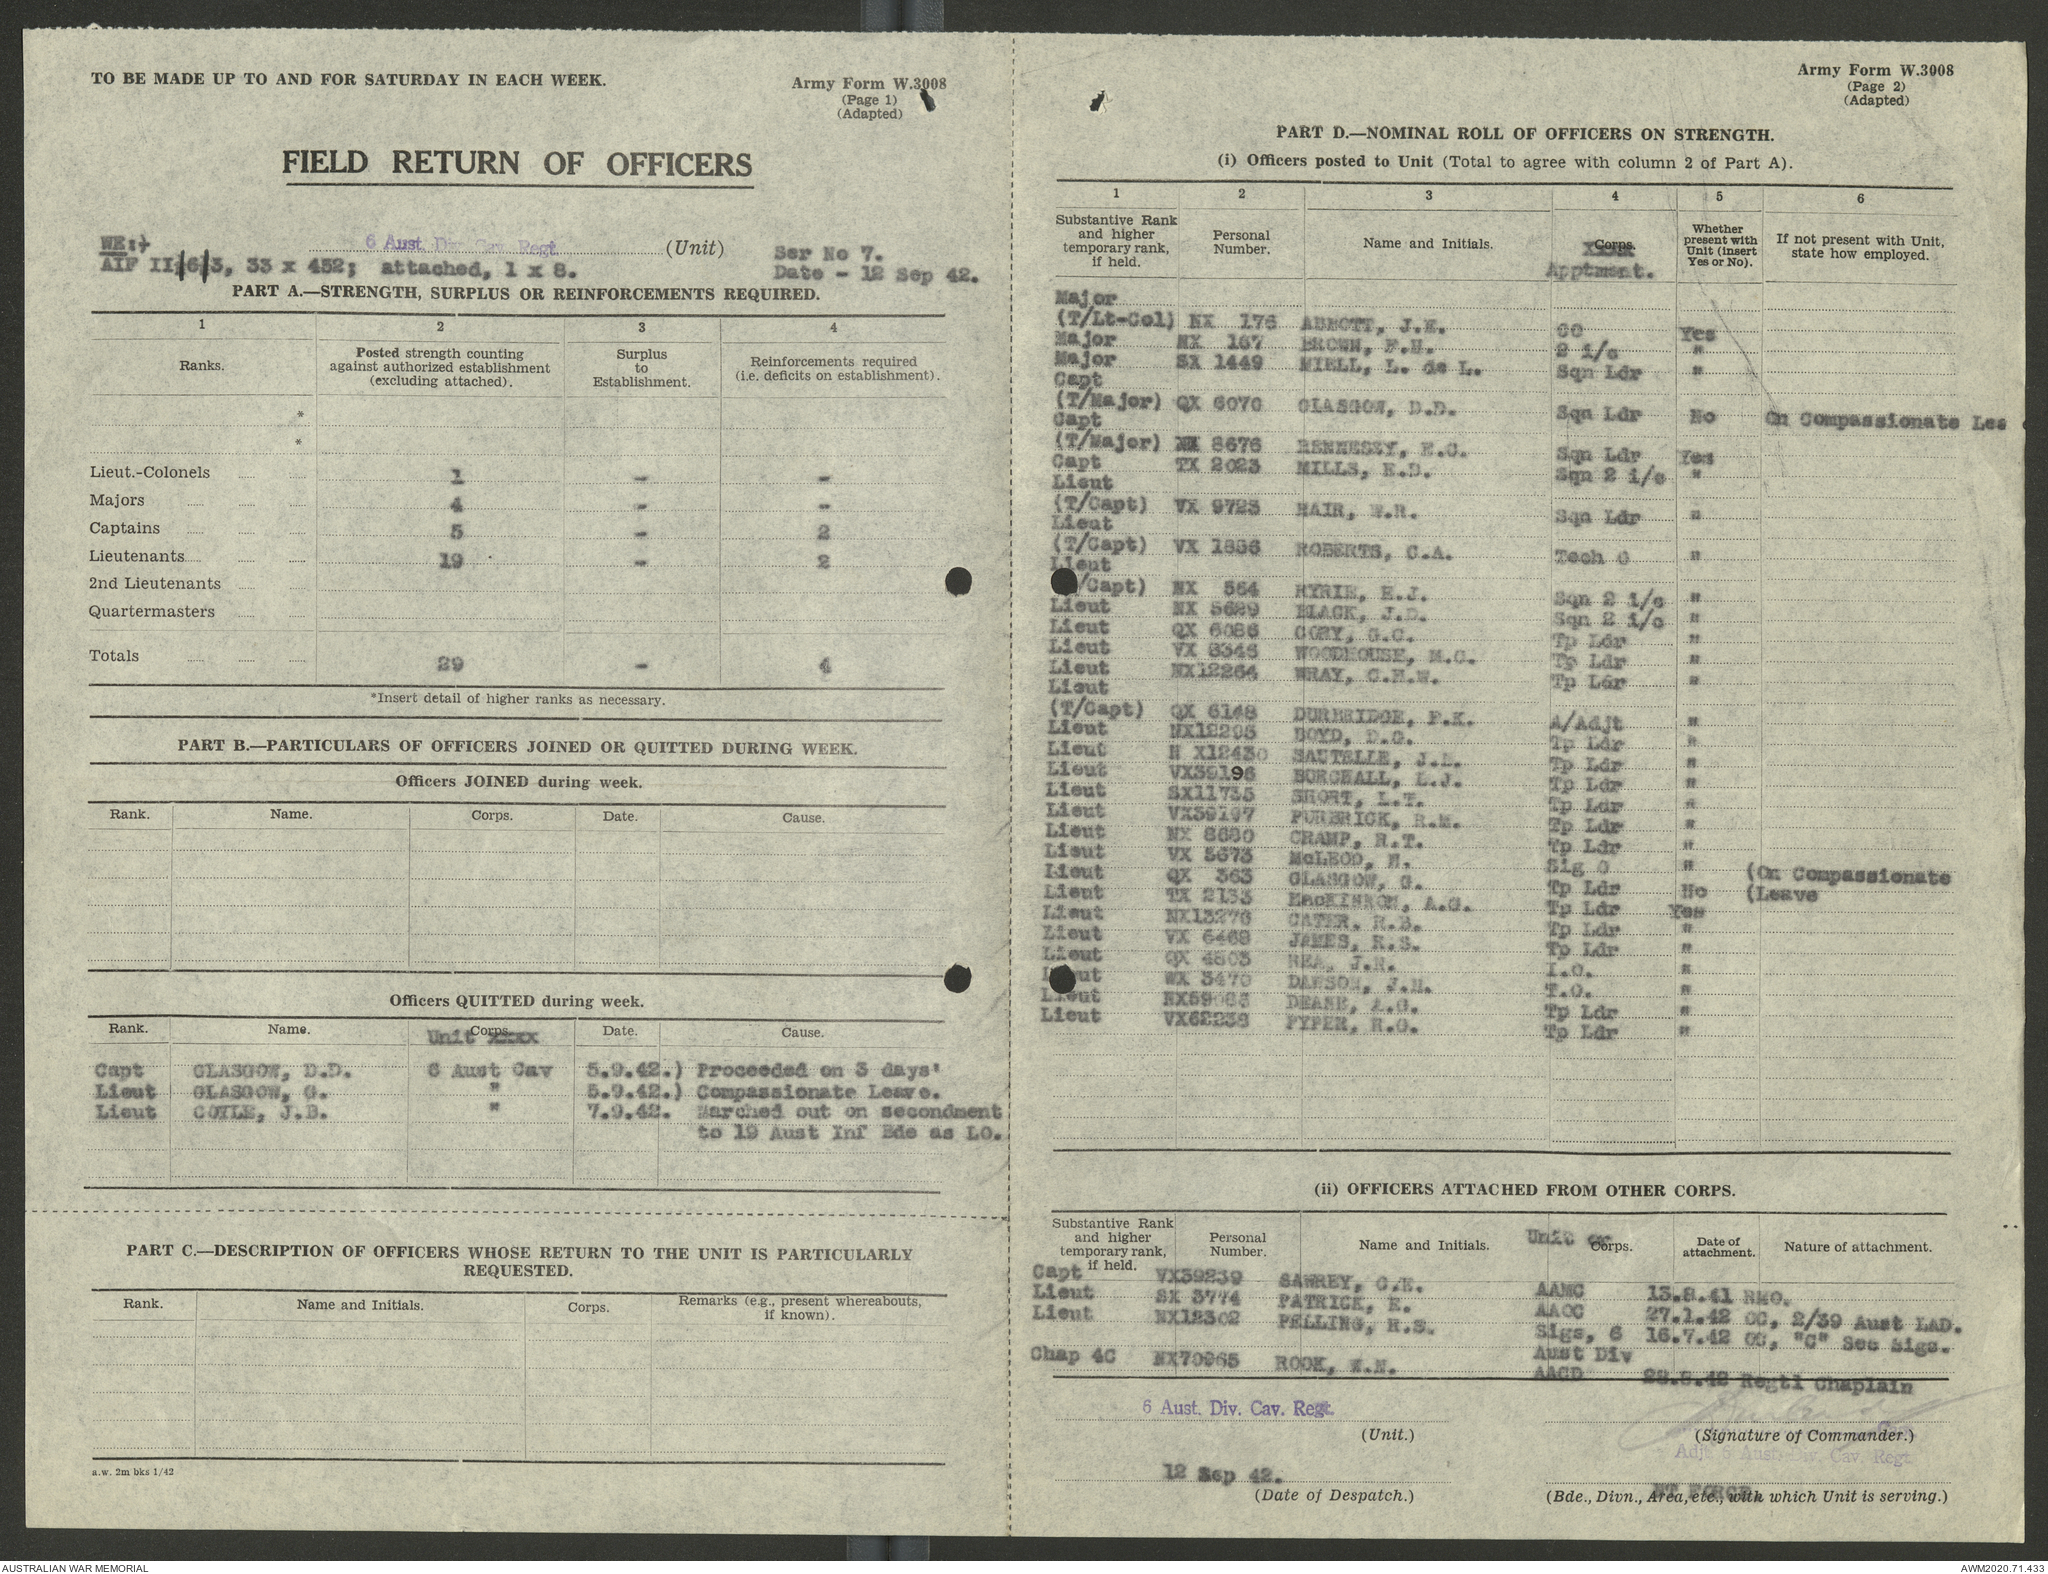 TO BE MADE UP TO AND FOR SATURDAY IN EACH WEEK.
Army Form W.3008
(Page 1)
(Adapted)
FIELD RETURN OF OFFICERS
WE:-
6 Aust. Div. Cav. Regt. (Unit) Ser No 7.
AIF II/6/3, 33 x 452; attached, 1 x 8. Date - 12 Sep 42.
PART A.—STRENGTH, SURPLUS OR REINFORCEMENTS REQUIRED.
1 2 3 4
Ranks. Posted strength counting against authorized establishment (excluding attached). Surplus to Establishment. Reinforcements required (i.e. deficits on establishment).
*
*
Lieut.-Colonels 1 - -
Majors 4 - -
Captains 5 - 2
Lieutenants 19 - 2
2nd Lieutenants
Quartermasters
Totals 29 - 4
*Insert detail of higher ranks as necessary.
PART B.—PARTICULARS OF OFFICERS JOINED OR QUITTED DURING WEEK.
Officers JOINED during week.
Rank. Name. Corps. Date. Cause.
Officers QUITTED during week.
Rank. Name. Unit Corps. Date. Cause.
Capt GLASGOW, D.D. 6 Aust Cav 5.9.42.) Proceeded on 3 days'
Lieut GLASGOW, G. " 5.9.42.) Compassionate Leave.
Lieut COYLE, J.B. " 7.9.42. Marched out on secondment
to 19 Aust Inf Bde as LO.
PART C.—DESCRIPTION OF OFFICERS WHOSE RETURN TO THE UNIT IS PARTICULARLY
REQUESTED.
Rank. Name and Initials. Corps. Remarks (e.g., present whereabouts, if known).
a.w. 2m bks 1/42
Army Form W.3008
(Page 2)
(Adapted)
PART D.—NOMINAL ROLL OF OFFICERS ON STRENGTH.
(i) Officers posted to Unit (Total to agree with column 2 of Part A).
1 2 3 4 5 6
Substantive Rank and higher temporary rank, if held. Personal Number. Name and Initials. Corps. Apptment. Whether present with Unit (insert Yes or No). If not present with Unit, state how employed.
Major
(T/Lt-Col) NX 176 ABBOTT, J.E. CO Yes
Major NX 167 BROWN, F.H. 2 i/c "
Major SX 1449 MIELL, L. de L. Sqn Ldr "
Capt
(T/Major) QX 6070 GLASGOW, D.D. Sqn Ldr No On Compassionate Lea
Capt
(T/Major) NX 8676 HENNESSY, E.C. Sqn Ldr Yes
Capt TX 2023 MILLS, E.D. Sqn 2 i/c "
Lieut
(T/Capt) VX 9723 HAIR, W.R. Sqn Ldr "
Lieut
(T/Capt) VX 1886 ROBERTS, C.A. Tech O "
Lieut
/Capt) NX 564 RYRIE, E.J. Sqn 2 i/c "
Lieut NX 5629 BLACK, J.D. Sqn 2 i/c "
Lieut QX 6086 CORY, G.C. Tp Ldr "
Lieut VX 8346 WOODHOUSE, M.C. Tp Ldr "
Lieut NX12264 WRAY, C.H.W. Tp Ldr "
Lieut
(T/Capt) QX 6148 DURBRIDGE, F.K. A/Adjt "
Lieut NX12295 BOYD, D.G. Tp Ldr "
Lieut N X12430 SAUTELLE, J.L. Tp Ldr "
Lieut VX39196 BURCHALL, L.J. Tp Ldr "
Lieut SX11735 SHORT, L.T. Tp Ldr "
Lieut VX39197 PURBRICK, R.M. Tp Ldr "
Lieut NX 8680 CRAMP, R.T. Tp Ldr "
Lieut VX 5673 McLEOD, N. Sig O "
Lieut QX 363 GLASGOW, G. Tp Ldr No (On Compassionate
(Leave
Lieut TX 2133 MacKINNON, A.G. Tp Ldr Yes
Lieut NX13276 CATER, R.B. Tp Ldr "
Lieut VX 6468 JAMES, R.S. Tp Ldr "
Lieut QX 4803 REA, J.N. I.O. "
Lieut WX 3470 DAWSON, J.H. T.O. "
Lieut NX59088 DEANE, A.G. Tp Ldr "
Lieut VX62238 PYPER, R.O. Tp Ldr "
(ii) OFFICERS ATTACHED FROM OTHER CORPS.
Substantive Rank and higher temporary rank, if held. Personal Number. Name and Initials. Unit or Corps. Date of attachment. Nature of attachment.
Capt VX39239 SAWREY, C.E. AAMC 13.8.41 RMO.
Lieut SX 3774 PATRICK, E. AAOC 27.1.42 OC, 2/39 Aust LAD.
Lieut NX12302 PELLING, H.S. Sigs, 6 Aust Div 16.7.42 OC, "C" Sec Sigs.
Chap 4C NX70965 ROOK, W.N. AACD 28.8.42 Regtl Chaplain
6 Aust. Div. Cav. Regt.
(Unit.)
Capt.
(Signature of Commander.)
Adjt 6 Aust. Div. Cav. Regt.
12 Sep 42.
(Date of Despatch.)
NT FORCE
(Bde., Divn., Area, etc., with which Unit is serving.)
AUSTRALIAN WAR MEMORIAL
AWM2020.71.433